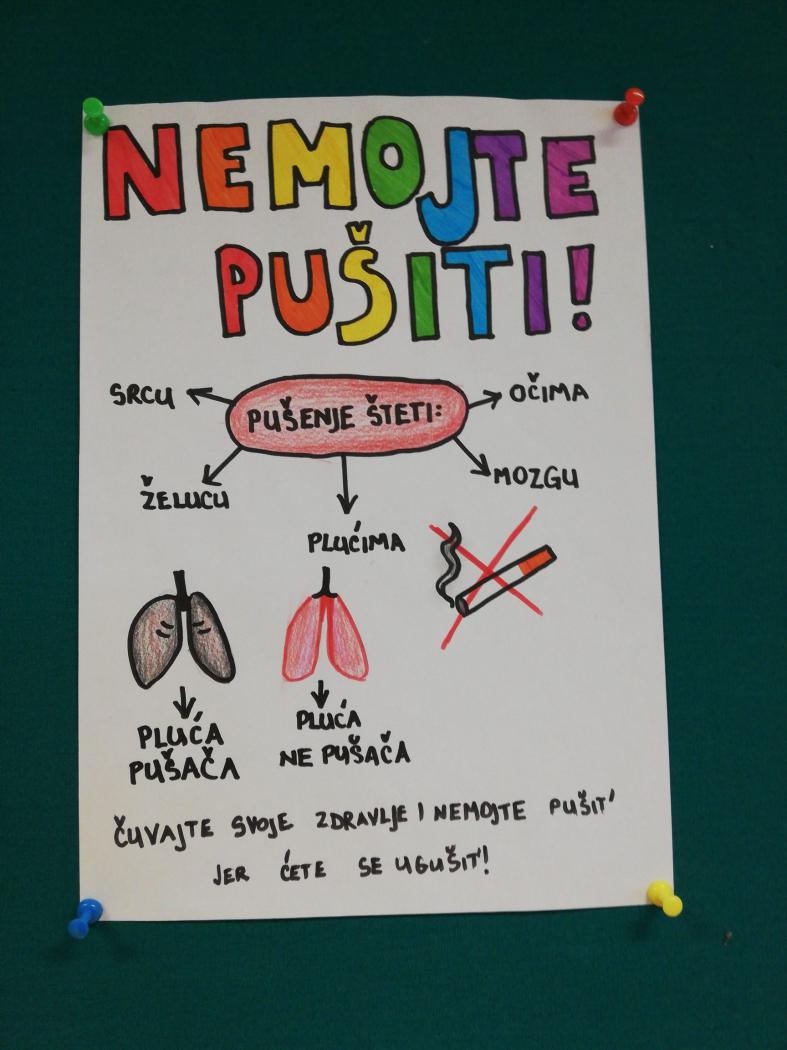 NEMOJTE
PUŠITI!
PUŠENJE ŠTETI:
SRCU
OČIMA
ŽELUCU
MOZGU
PLUĆIMA
PLUĆA
PUŠAČA
PLUĆA
NE PUŠAČA
ČUVAJTE SVOJE ZDRAVLJE I NEMOJTE PUŠIT'
JER ĆETE SE UGUŠIT'!